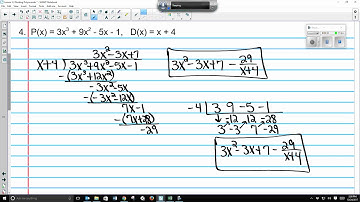 4. P(x) = 3x³ + 9x² - 5x - 1, D(x) = x + 4
3x²-3x+7
x+4 | 3x³+9x²-5x-1
-(3x³+12x²)
-3x²-5x
-(-3x²-12x)
7x-1
-(7x+28)
-29
3x²-3x+7 - 29/(x+4)
-4 | 3 9 -5 -1
↓ -12 12 -28
3 -3 7 -29
3x²-3x+7 - 29/(x+4)